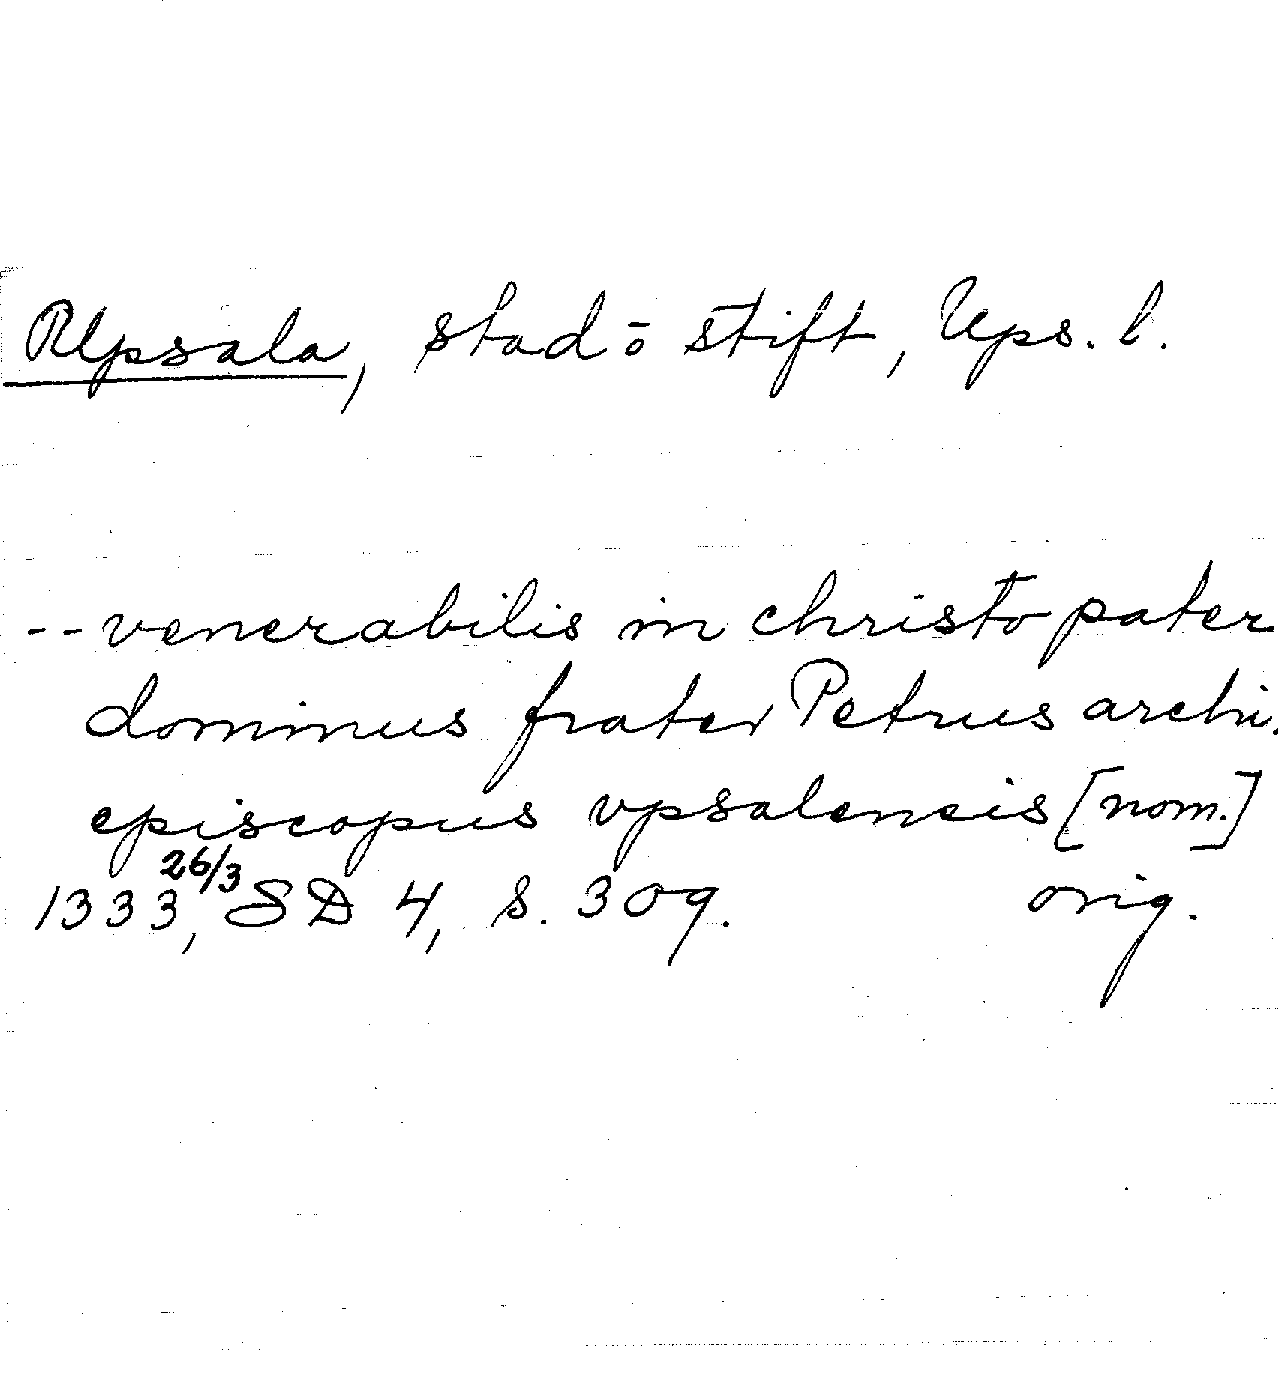 Uppsala, stad o stift, Ups. l.
-- venerabilis in christo pater
dominus frater Petrus archi-
episcopus vpsalensis [nom.]
1333, 26/3 SD 4, s. 309. orig.